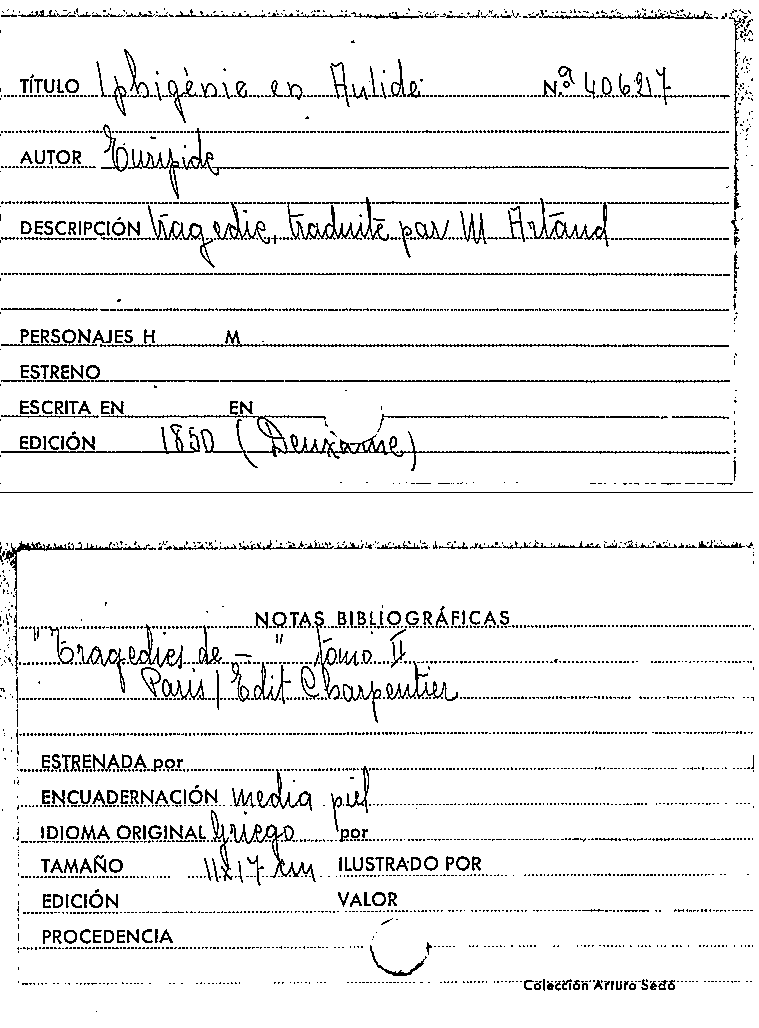 TÍTULO Iphigénie en Aulide Nº 406217
AUTOR Euripide
DESCRIPCIÓN tragedie, traduite par M Artaud
PERSONAJES H M
ESTRENO
ESCRITA EN EN
EDICIÓN 1850 (Deuxième)
NOTAS BIBLIOGRÁFICAS
"Tragedies de — " tomo II
Paris / Edit Charpentier
ESTRENADA por
ENCUADERNACIÓN media piel
IDIOMA ORIGINAL Griego por
TAMAÑO 11x17 cm ILUSTRADO POR
EDICIÓN VALOR
PROCEDENCIA
Colección Arturo Sedó